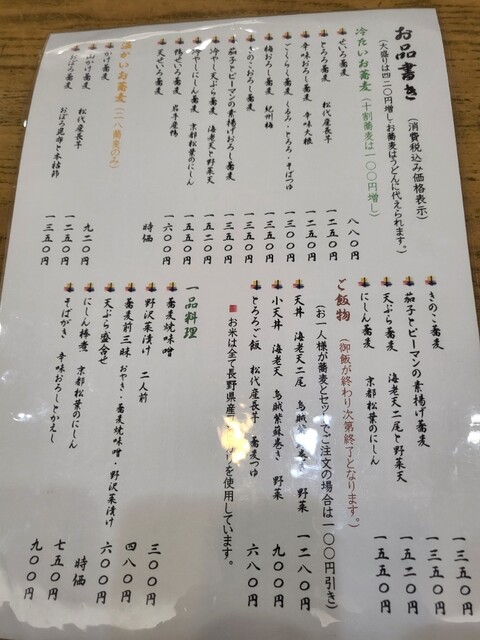 お品書き (消費税込み価格表示)
(大盛りは四二〇円増し・お蕎麦はうどんに代えられます。)
冷たいお蕎麦 (十割蕎麦は一〇〇円増し)
せいろ蕎麦 八八〇円
とろろ蕎麦 松代産長芋 一二五〇円
辛味おろし蕎麦 辛味大根 一二五〇円
ごくらく蕎麦 くるみ・とろろ・そばつゆ 一三〇〇円
梅おろし蕎麦 紀州梅 一三〇〇円
きのこおろし蕎麦 一三五〇円
茄子とピーマンの素揚げおろし蕎麦 一三五〇円
冷やし天ぷら蕎麦 海老天と野菜天 一五二〇円
冷やしにしん蕎麦 京都松葉のにしん 一五五〇円
鴨せいろ蕎麦 岩手産鴨 一六〇〇円
天せいろ蕎麦 時価
温かいお蕎麦 (二八蕎麦のみ)
かけ蕎麦 九二〇円
山かけ蕎麦 松代産長芋 一二五〇円
おぼろ蕎麦 おぼろ昆布と本枯節 一三五〇円
きのこ蕎麦 一三五〇円
茄子とピーマンの素揚げ蕎麦 一三五〇円
天ぷら蕎麦 海老天二尾と野菜天 一五二〇円
にしん蕎麦 京都松葉のにしん 一五五〇円
ご飯物 (御飯が終わり次第終了となります。)
(お一人様が蕎麦とセットでご注文の場合は一〇〇円引き)
天丼 海老天二尾 烏賊紫蘇巻き 野菜 一二八〇円
小天丼 海老天 烏賊紫蘇巻き 野菜 九〇〇円
とろろご飯 松代産長芋 蕎麦つゆ 六八〇円
お米は全て長野県産を使用しています。
一品料理
蕎麦焼味噌 三〇〇円
野沢菜漬け 二人前 四八〇円
蕎麦前三昧 おやき・蕎麦焼味噌・野沢菜漬け 六〇〇円
天ぷら盛合せ 時価
にしん棒煮 京都松葉のにしん 七五〇円
そばがき 辛味おろしとかえし 九〇〇円